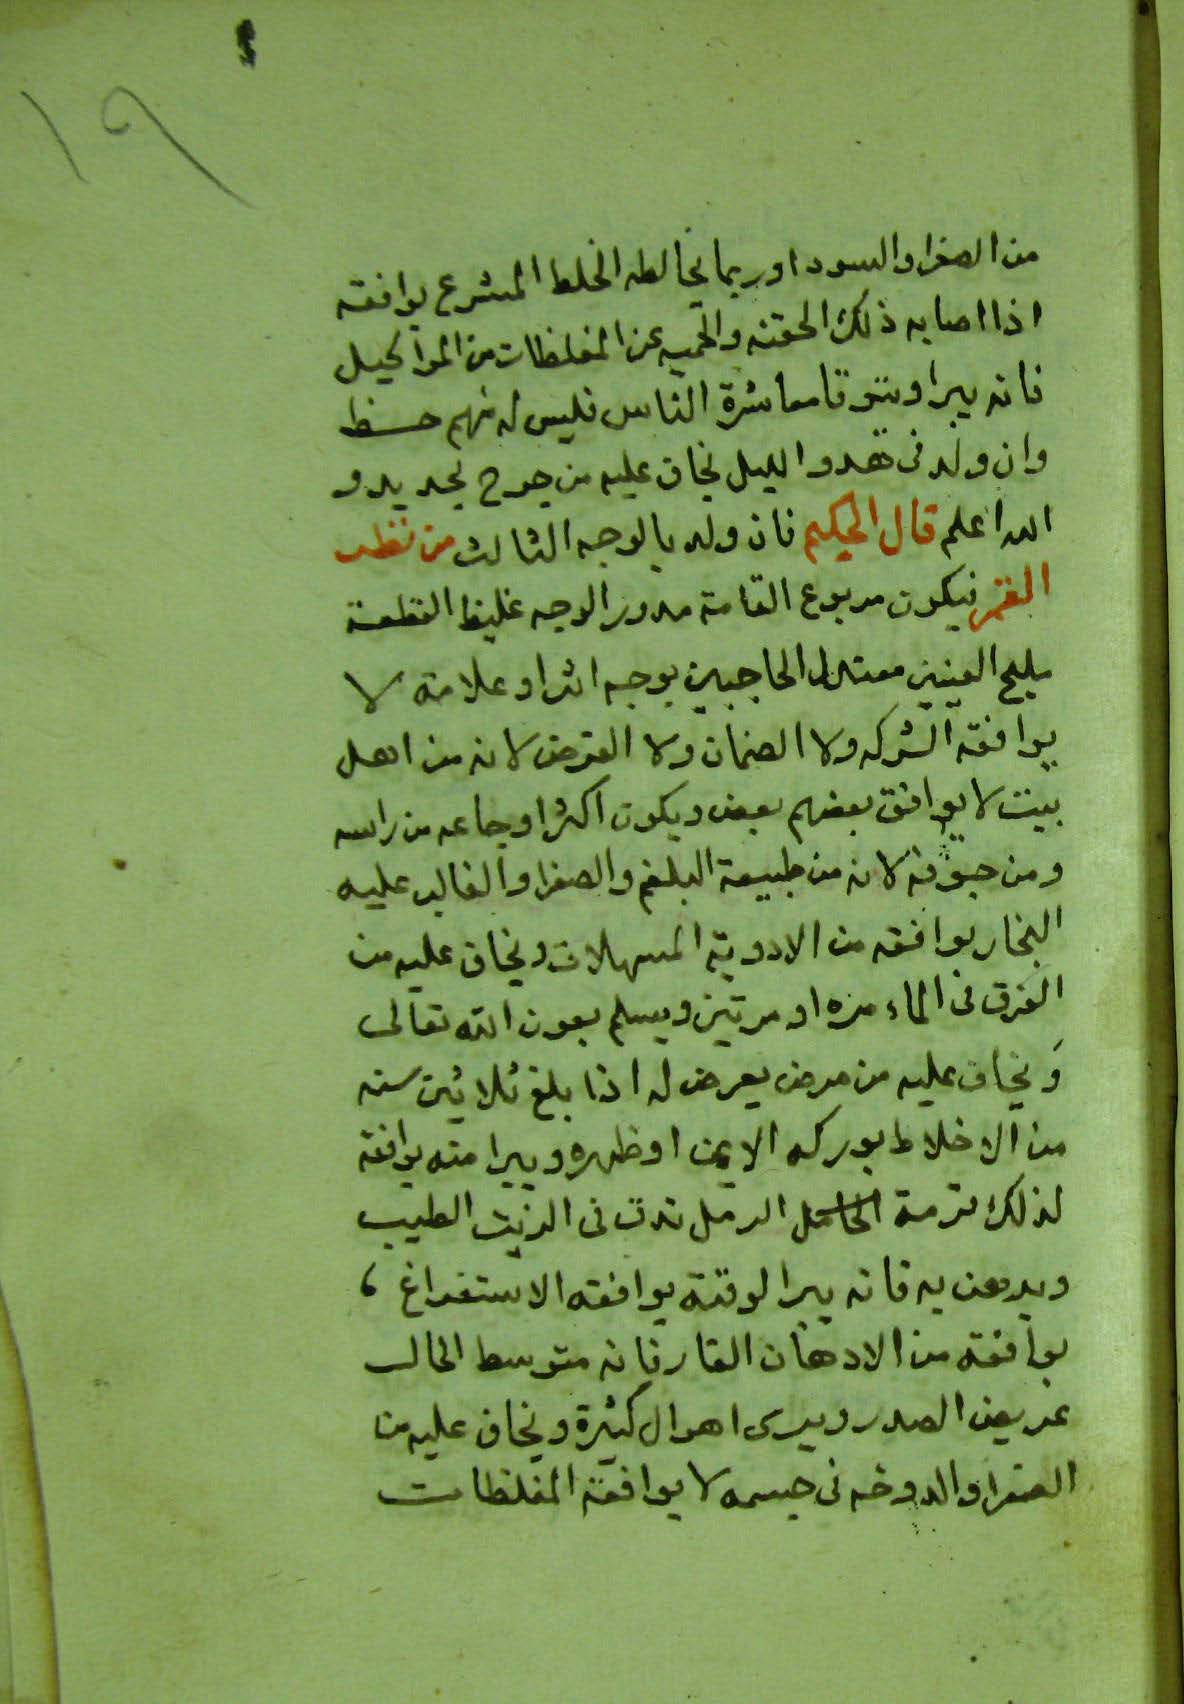 ١٩
من الصفرا والسودا وربما يخالطه الخلط المشرع يوافقه
اذا اصابه ذلك الحقنه والحميه عن المغلظات من المواكيل
فانه يبرا ويتوقا معاشرة الناس فليس له منهم حظ
وان ولد فى هدو الليل يخاف عليه من جرح بحديد و
الله اعلم قال الحكيم فان ولد بالوجه الثالث من نظر
القمر فيكون مربوع القامة مدور الوجه غليظ القطعة
مليح العينين معتدل الحاجبين بوجهه اثر او علامة لا
يوافقه الشركه ولا الضمان ولا القرض لانه من اهل
بيت لا يوافق بعضهم بعض ويكون اكثر اوجاعه من راسه
ومن جوفه لانه من طبيعة البلغم والصفرا والغالب عليه
البخار يوافقه من الادوية المسهلات ويخاف عليه من
الغرق فى الماء مره او مرتين ويسلم بعون الله تعالى
ويخاف عليه من مرض يعرض له اذا بلغ ثلاثين سنه
من الاخلاط بوركه الايمن او ظهره ويبرا منه يوافقه
لذلك الرمل تدق فى الزيت الطيب
ويدهن به فانه يبرا لوقته يوافقه الاستفراغ ،
يوافقه من الادهان القار فانه متوسط الحال
عريض الصدر ويرى اهوال كثيرة ويخاف عليه من
الصفرا والدوخه فى جسمه لا يوافقه المغلظات